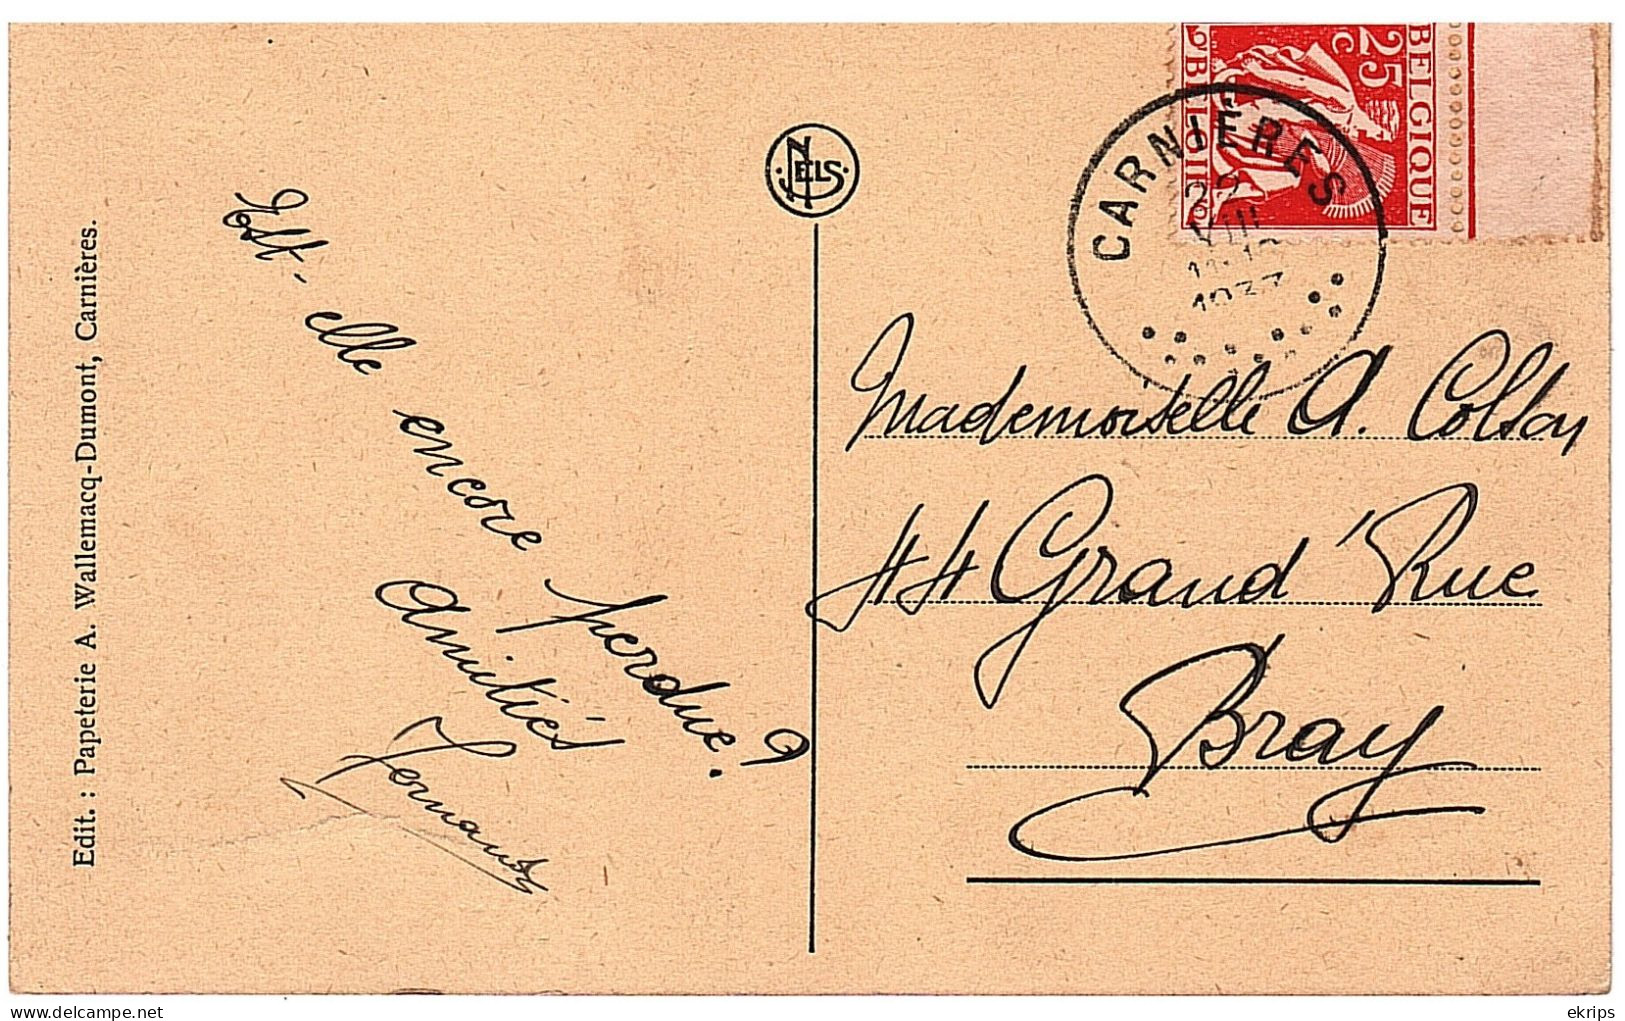 Edit. : Papeterie A. Wallemacq-Dumont, Carnières.
Est-elle encore perdue ?
Amitiés
Fernande
NELS
BELGIQUE
25
c
BELGIË
CARNIÈRES
22
VIII
1937
Mademoiselle A. Colson
44 Grand'Rue
Bray
ekrips